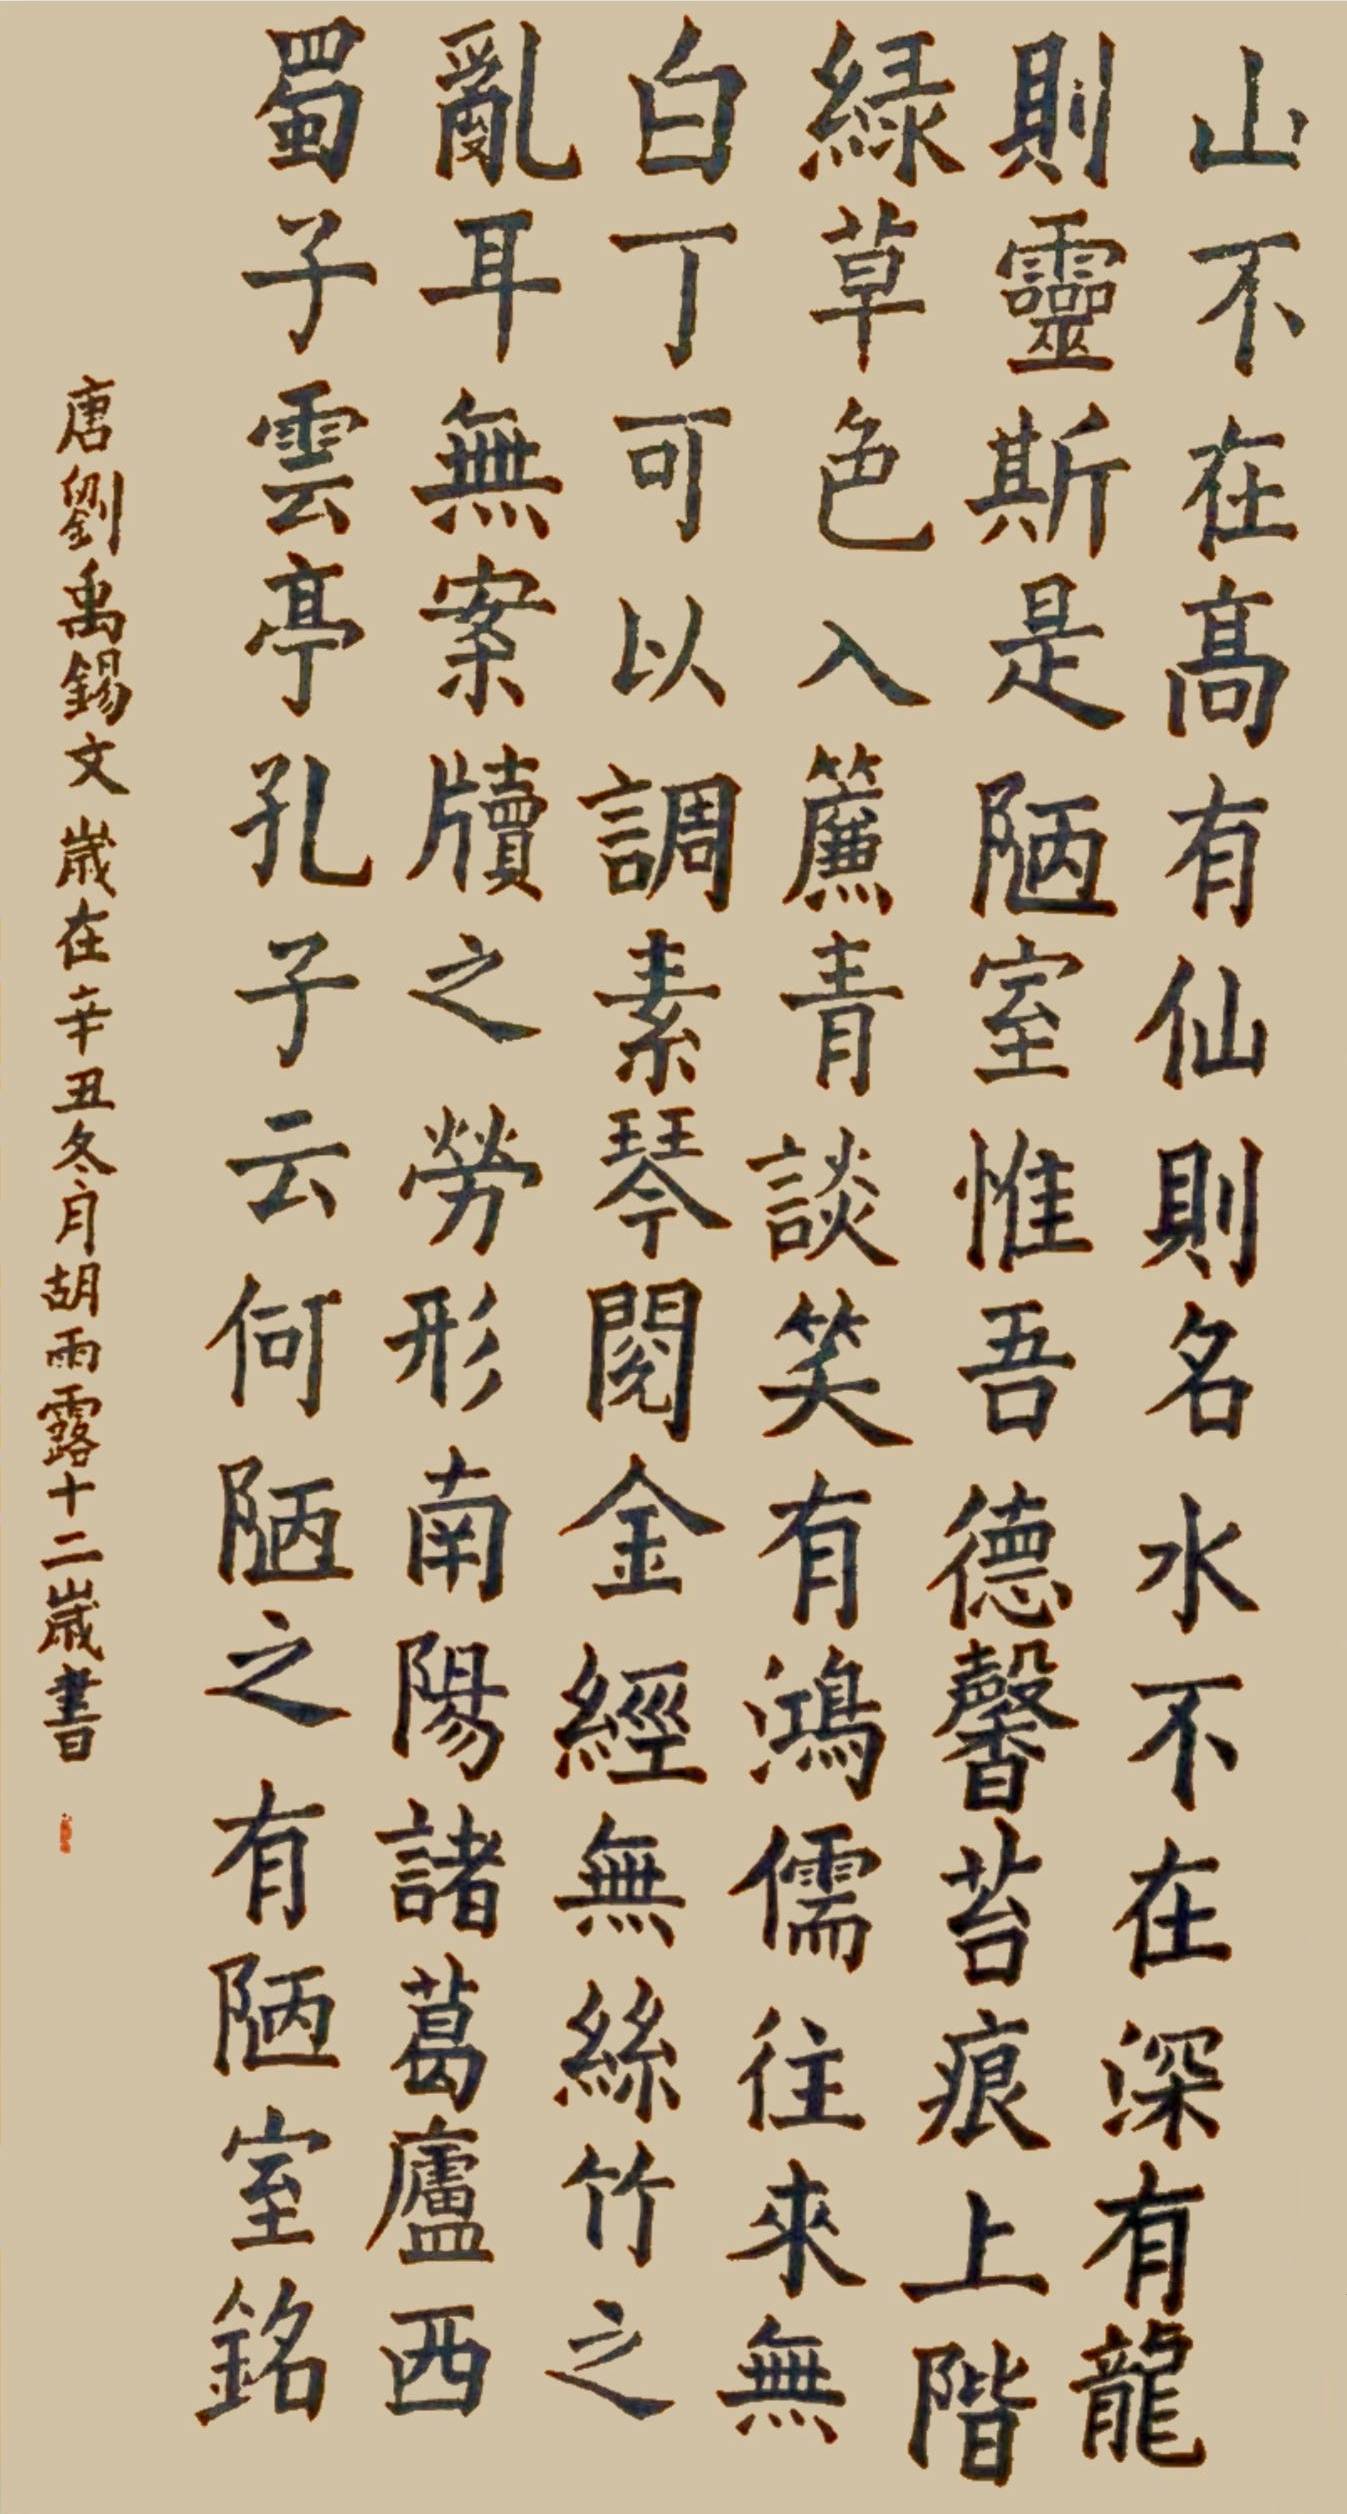 山不在高有仙則名水不在深有龍
則靈斯是陋室惟吾德馨苔痕上階
綠草色入簾青談笑有鴻儒往來無
白丁可以調素琴閱金經無絲竹之
亂耳無案牘之勞形南陽諸葛廬西
蜀子雲亭孔子云何陋之有陋室銘
唐劉禹錫文歲在辛丑冬月胡雨露十二歲書